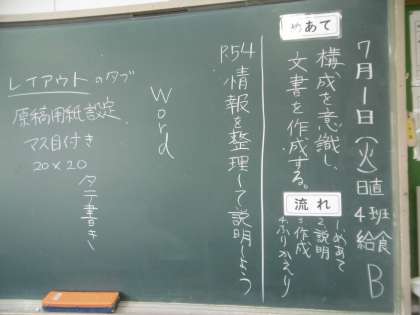 7月1日(火)
日直
4班
給食
B
めあて
構成を意識し、
文書を作成する。
流れ
1.めあて
2.説明
3.作成
4.ふりかえり
P.54 情報を整理して説明しよう
Word
レイアウトのタブ
原稿用紙設定
マス目付き
20×20
タテ書き